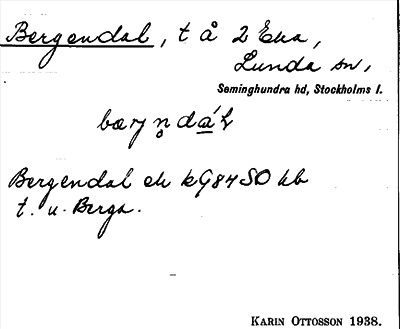 Bergendal, t å 2 Eka,
Lunda sn,
Seminghundra hd, Stockholms l.
bærjn̥dáɫ
Bergendal ek kG84SO hb
t. u. Berga.
KARIN OTTOSSON 1938.